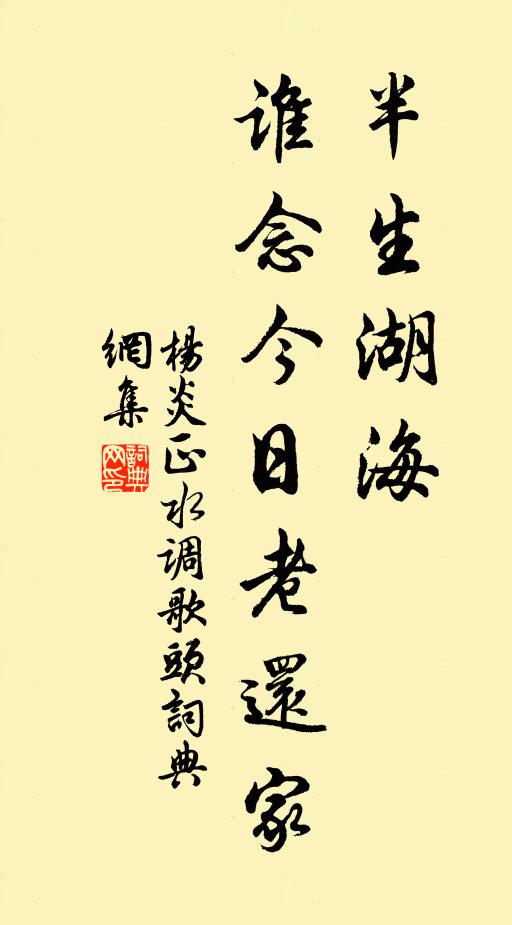 半生湖海
谁念今日老還家
楊炎正水调歌頭詞典
網集
詞典网印